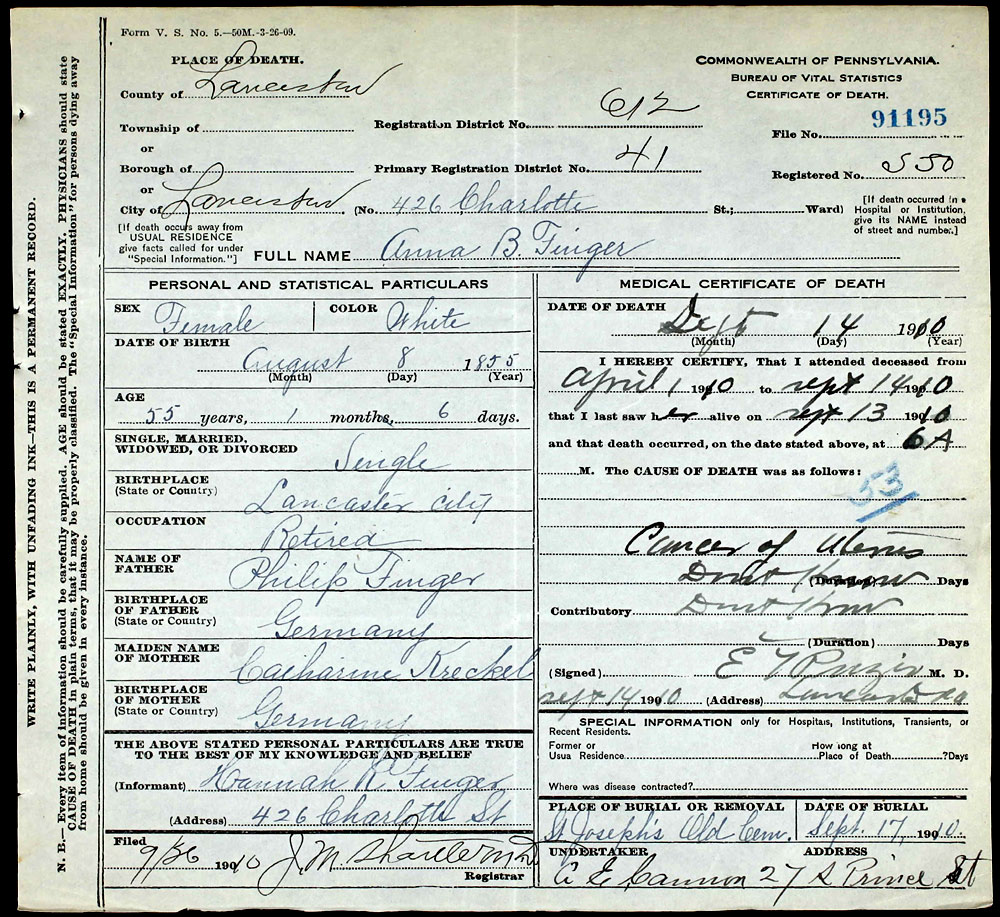 Form V. S. No. 5.—50M.-3-26-09.
PLACE OF DEATH.
County of Lancaster
Township of
or
Borough of
or
City of Lancaster
[If death occurs away from
USUAL RESIDENCE
give facts called for under
"Special Information."]
COMMONWEALTH OF PENNSYLVANIA.
BUREAU OF VITAL STATISTICS
CERTIFICATE OF DEATH.
Registration District No. 612
File No. 91195
Primary Registration District No. 41
Registered No. 550
(No. 426 Charlotte St.; Ward)
[If death occurred in a
Hospital or Institution,
give its NAME instead
of street and number.]
FULL NAME Anna B. Finger
PERSONAL AND STATISTICAL PARTICULARS
SEX Female COLOR White
DATE OF BIRTH
August 8 1855
(Month) (Day) (Year)
AGE
55 years, 1 months, 6 days.
SINGLE, MARRIED,
WIDOWED, OR DIVORCED Single
BIRTHPLACE
(State or Country) Lancaster City
OCCUPATION Retired
NAME OF
FATHER Philip Finger
BIRTHPLACE
OF FATHER
(State or Country) Germany
MAIDEN NAME
OF MOTHER Catharine Kreckel
BIRTHPLACE
OF MOTHER
(State or Country) Germany
THE ABOVE STATED PERSONAL PARTICULARS ARE TRUE
TO THE BEST OF MY KNOWLEDGE AND BELIEF
(Informant) Hannah R. Finger
(Address) 426 Charlotte St
Filed
9/36 1910 J. M.
Registrar
MEDICAL CERTIFICATE OF DEATH
DATE OF DEATH
Sept 14 1910
(Month) (Day) (Year)
I HEREBY CERTIFY, That I attended deceased from
April 1 1910 to Sept 14 1910
that I last saw her alive on Sept 13 1910
and that death occurred, on the date stated above, at 6 A
M. The CAUSE OF DEATH was as follows:
53
Cancer of Uterus
Don't Know (Duration) Days
Contributory Don't Know
(Duration) Days
(Signed) M. D.
Sept 14 1910 (Address) Lancaster Pa
SPECIAL INFORMATION only for Hospitals, Institutions, Transients, or
Recent Residents.
Former or
Usua Residence
How long at
Place of Death ?Days
Where was disease contracted?
PLACE OF BURIAL OR REMOVAL
St Joseph's Old Cem.
DATE OF BURIAL
Sept. 17, 1910.
UNDERTAKER
A E Cannon
ADDRESS
27 S Prince St
WRITE PLAINLY, WITH UNFADING INK—THIS IS A PERMANENT RECORD.
N. B.—Every item of information should be carefully supplied. AGE should be stated EXACTLY. PHYSICIANS should state
CAUSE OF DEATH in plain terms, that it may be properly classified. The "Special Information" for persons dying away
from home should be given in every instance.